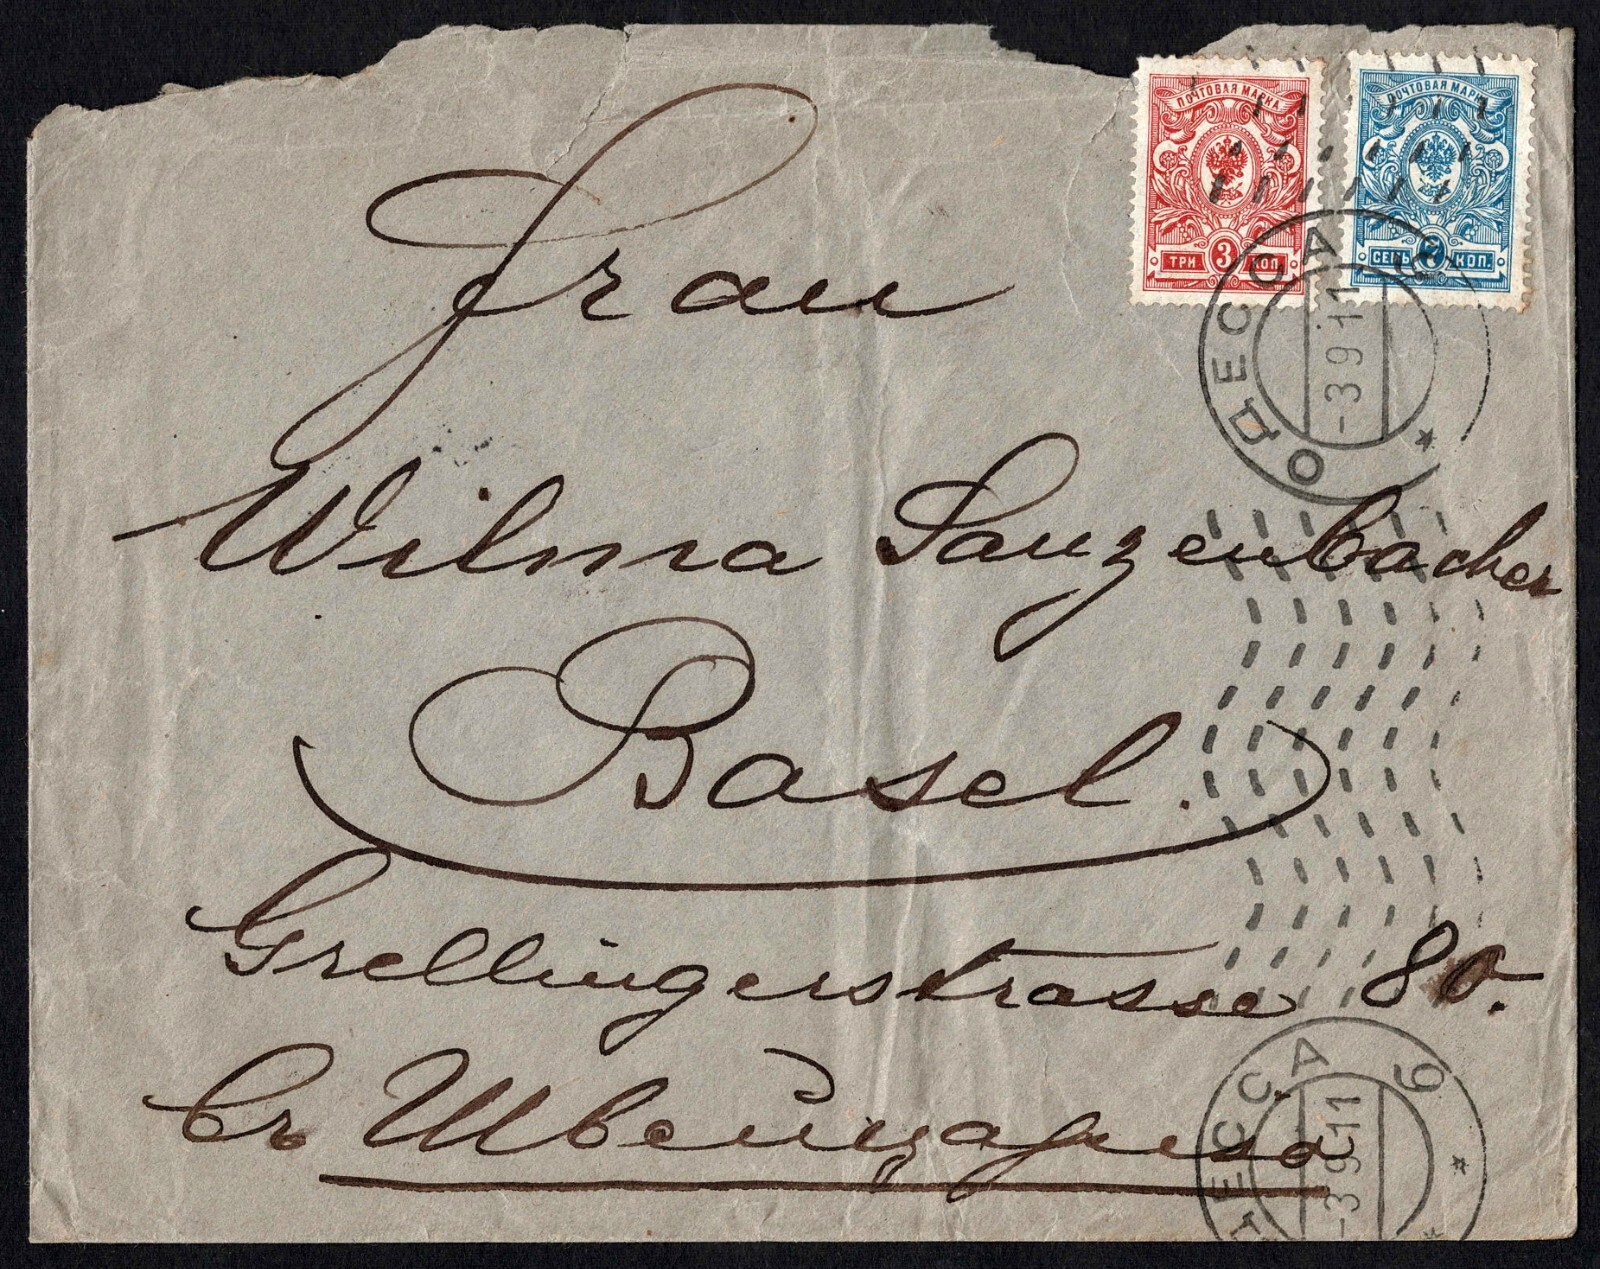 ПОЧТОВАЯ МАРКА
ТРИ 3 КОП.
ПОЧТОВАЯ МАРКА
СЕМЬ 7 КОП.
ОДЕССА
-3 9 11
Frau
Wilma Sanzenbacher
Basel.
Grellingerstrasse 80.
Въ Швейцарiю
ОДЕССА 6
-3 9 11